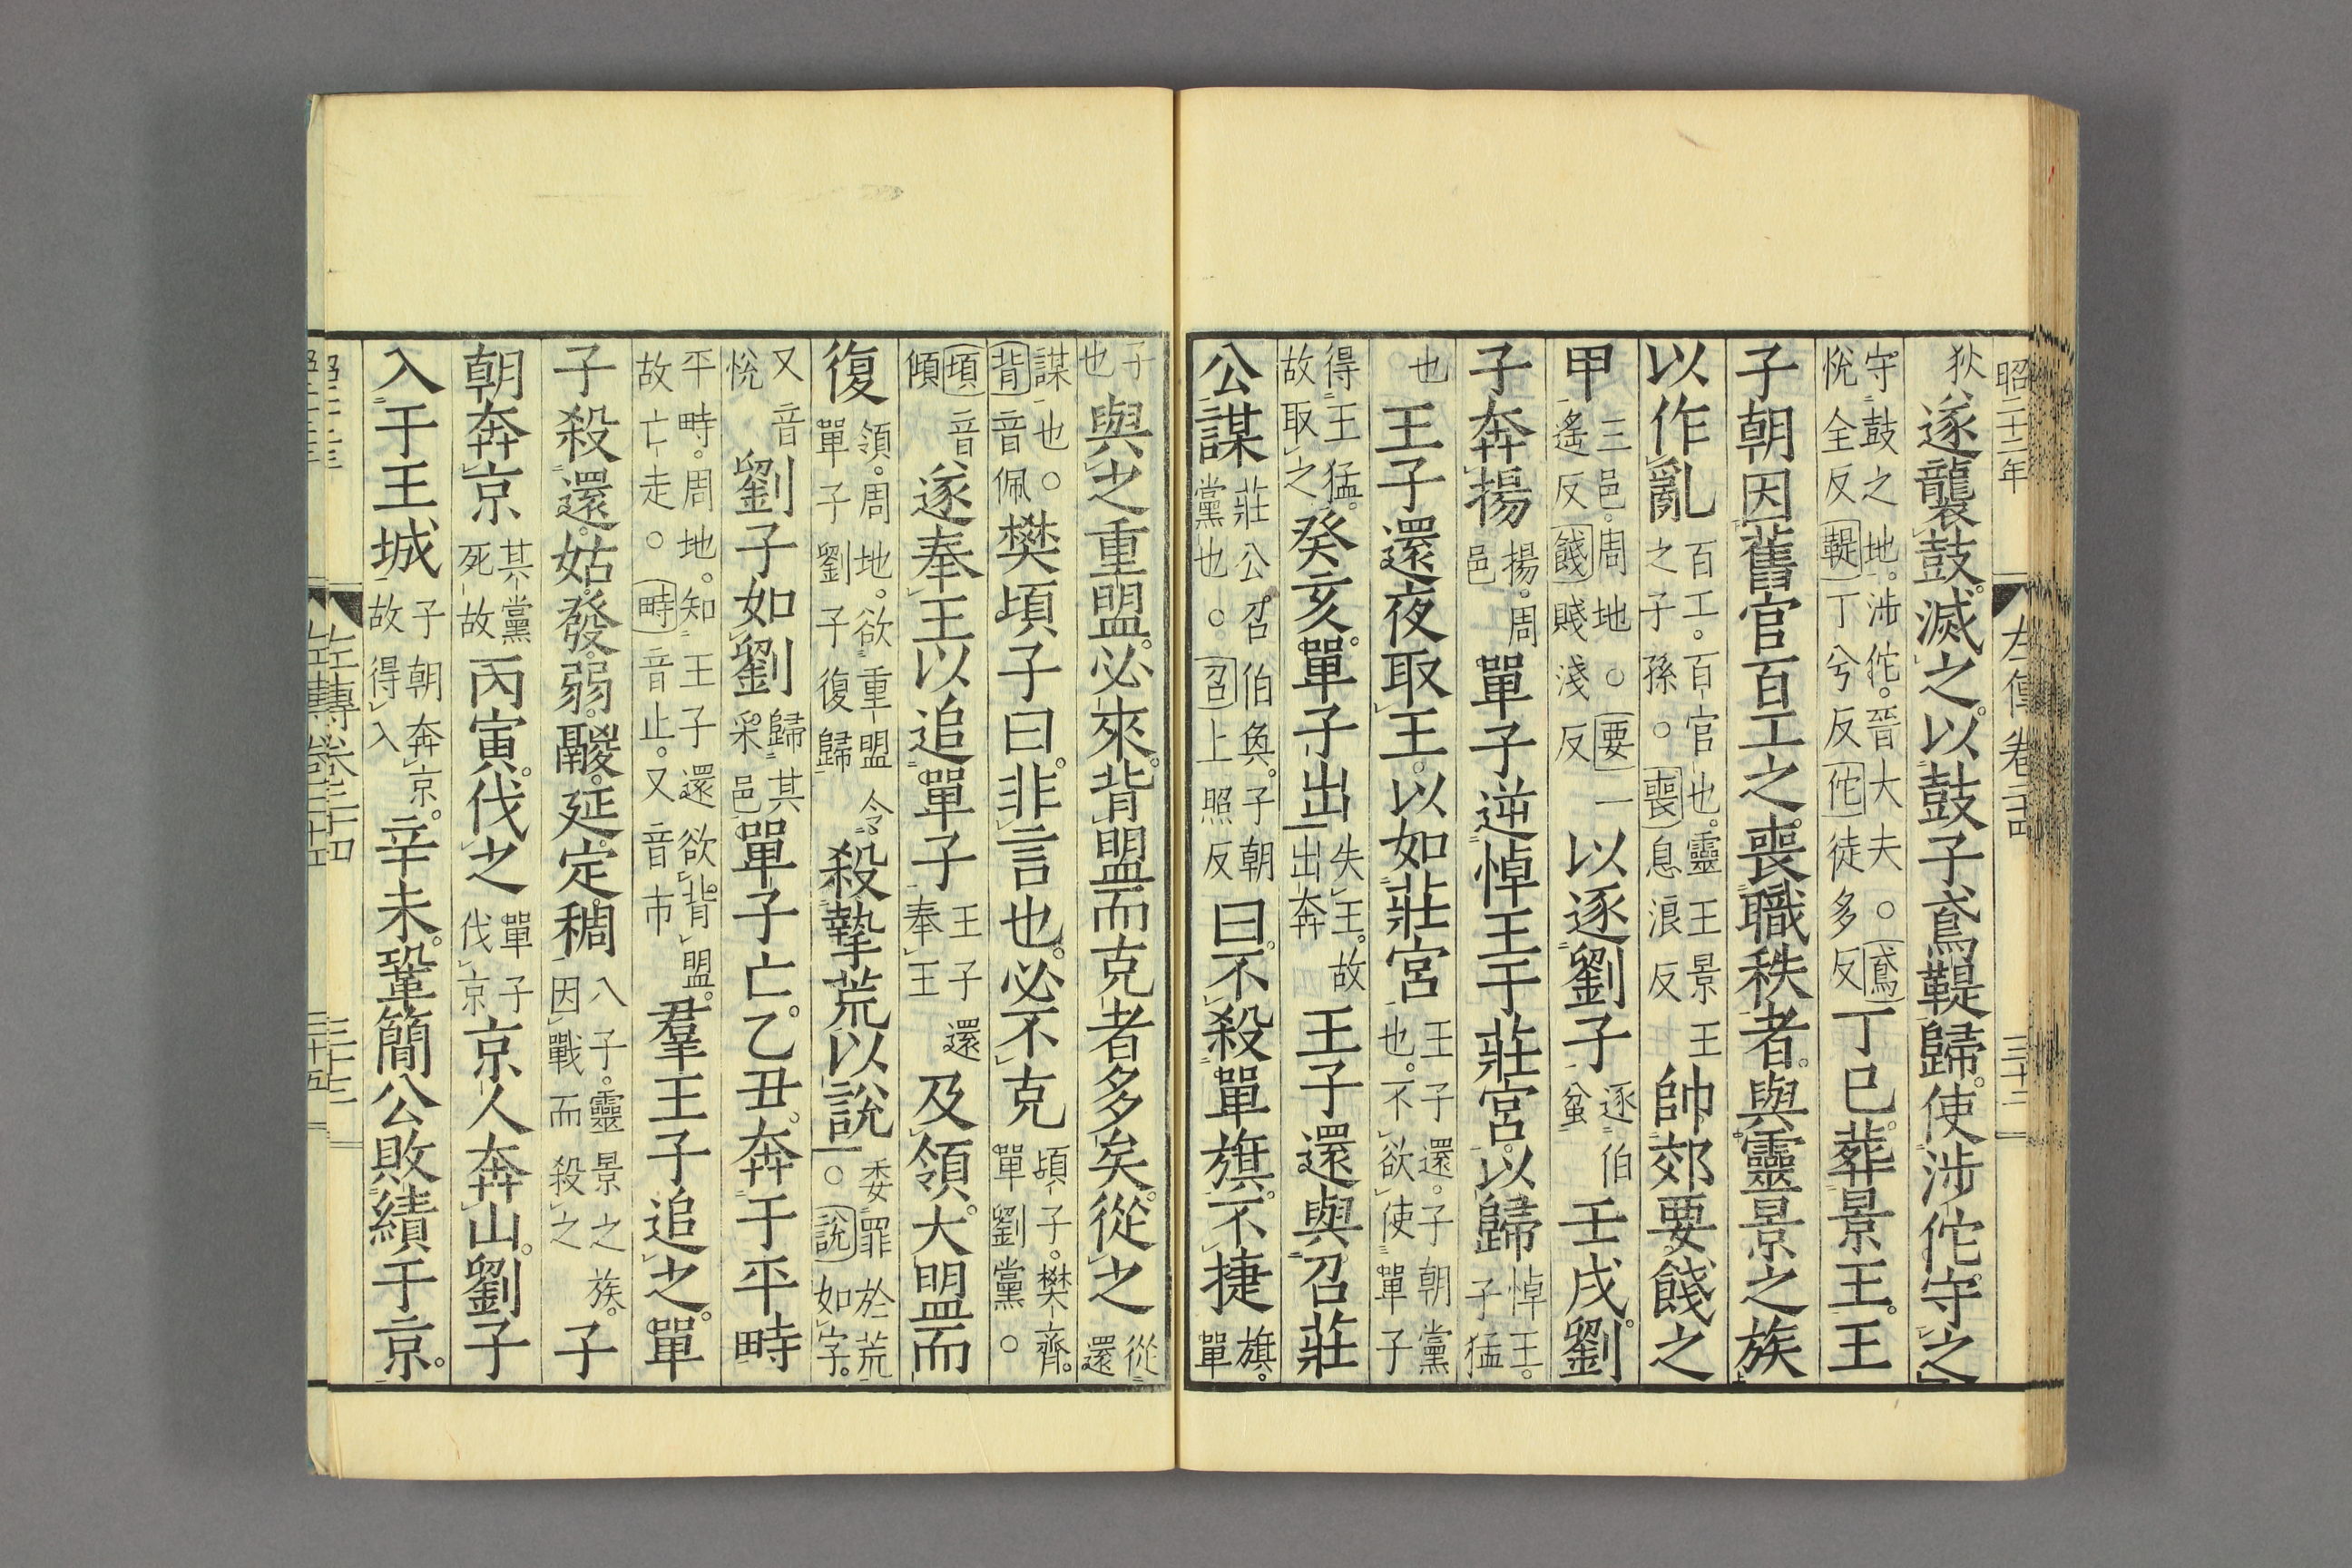 昭二十二年　左傳卷二十四　三十二
狄遂襲鼓。滅之。以鼓子鳶鞮歸。使涉佗守之
守鼓之地。涉佗。晉大夫○鳶悅全反鞮丁兮反佗徒多反丁巳葬景王。王
子朝因舊官百工之喪職秩者。與靈景之族
以作亂百工。百官也。靈王景王之子孫。○喪息浪反帥郊要餞之
甲三邑。周地。○要一遙反餞賤淺反以逐劉子逐伯蚠壬戌。劉
子奔揚揚。周邑單子逆悼王于莊宮。以歸悼王。子猛
也王子還夜取王。以如莊宮王子還。子朝黨也。不欲使單子
得王猛。故取之癸亥。單子出失王。故出奔王子還與召莊
公謀莊公召伯奐。子朝黨也。○召上照反曰。不殺單旗。不捷旗。單
子也與之重盟。必來。背盟而克者多矣。從之從還
謀也。○背音佩樊頃子曰。非言也。必不克頃子。樊齊。單劉黨。○
頃音傾遂奉王以追單子王子還奉王及領。大盟而
復領。周地。欲重盟令單子劉子復歸殺摯荒以說委罪於荒○說如字。
又音悅劉子如劉歸其采邑單子亡。乙丑。奔于平畤
平畤。周地。知王子還欲背盟。故亡走。○畤音止。又音市羣王子追之。單
子殺還。姑。發。弱。鬷。延。定。稠八子。靈景之族。因戰而殺之子
朝奔京其黨死故丙寅。伐之單子伐京京人奔山。劉子
入于王城子朝奔京。故得入辛未。鞏簡公敗績于京。